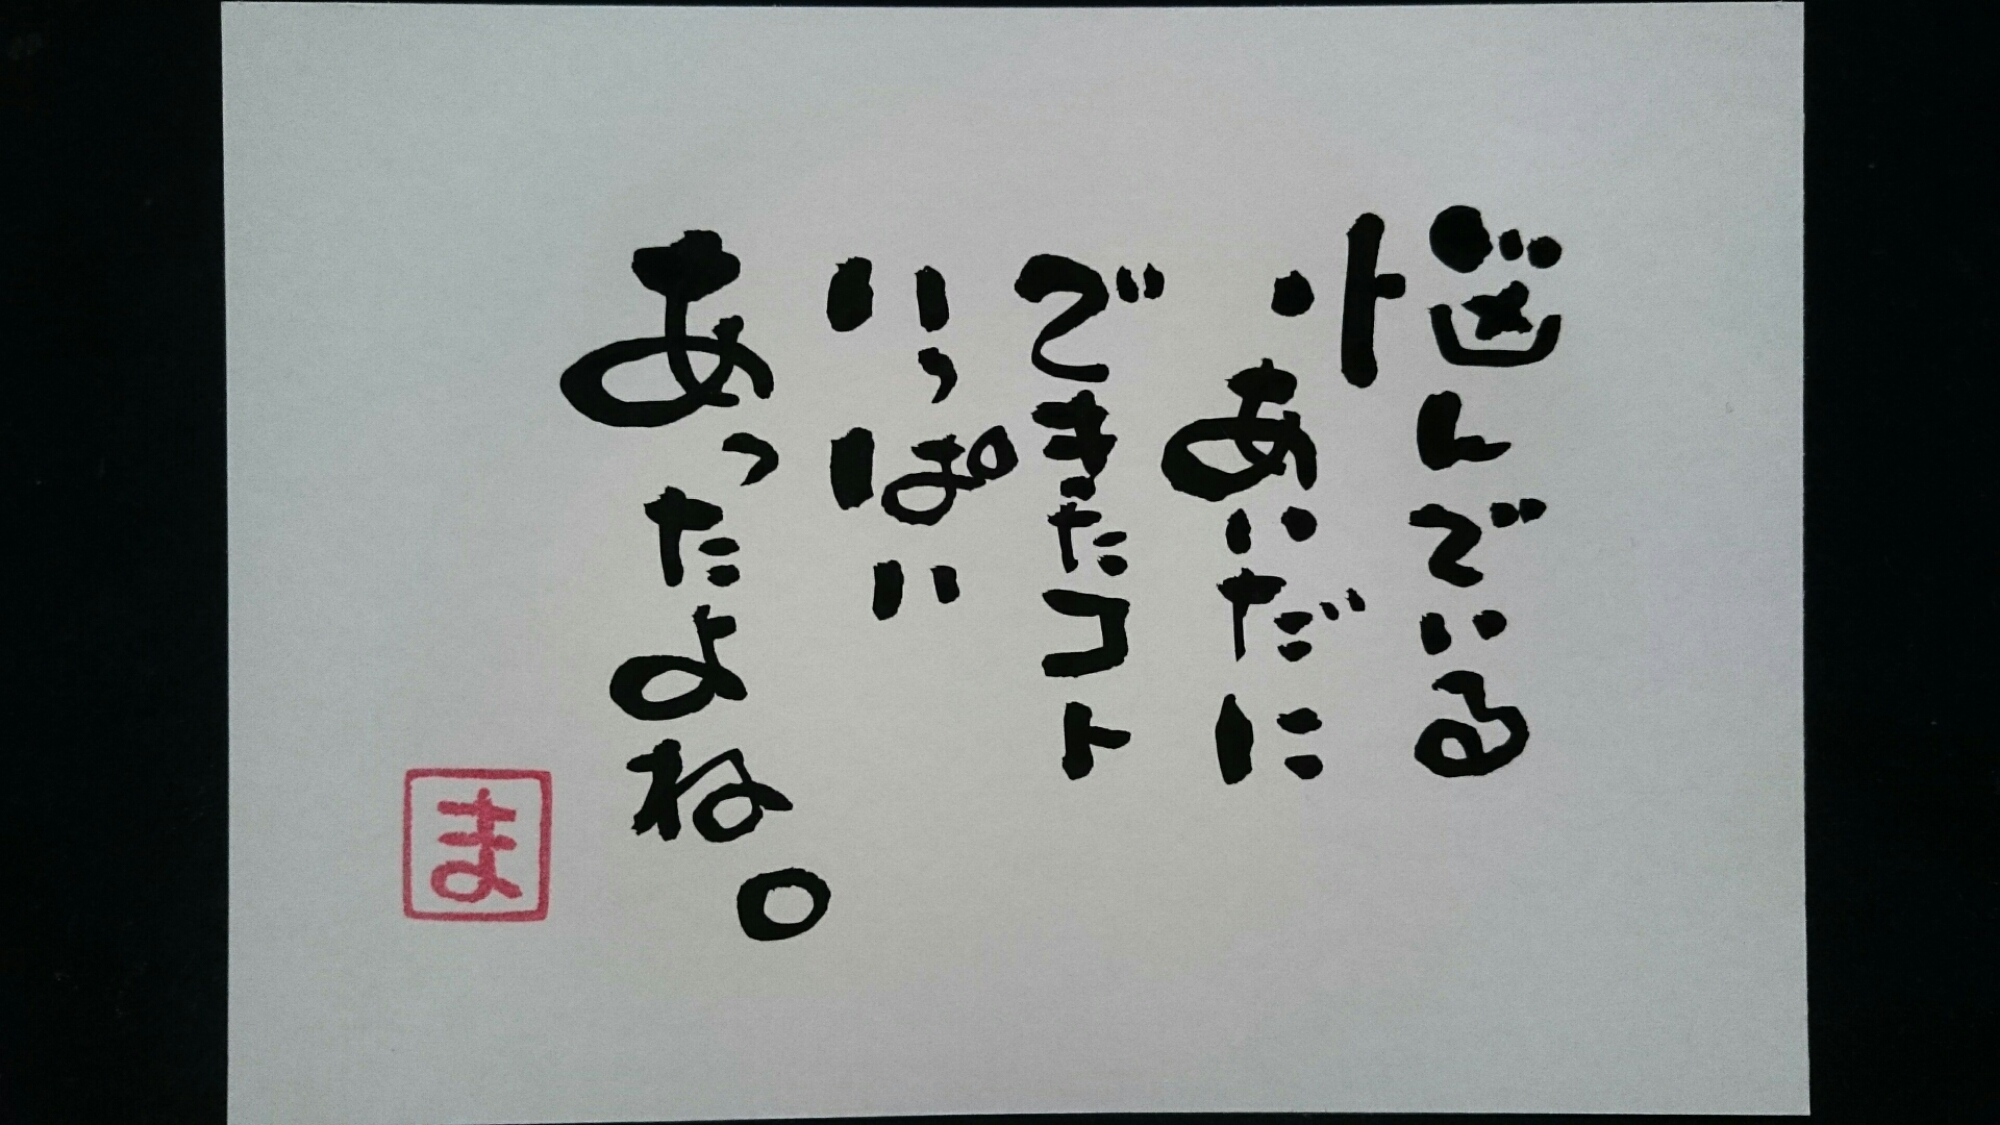 悩んでいる
あいだに
できたコト
いっぱい
あったよね。
ま